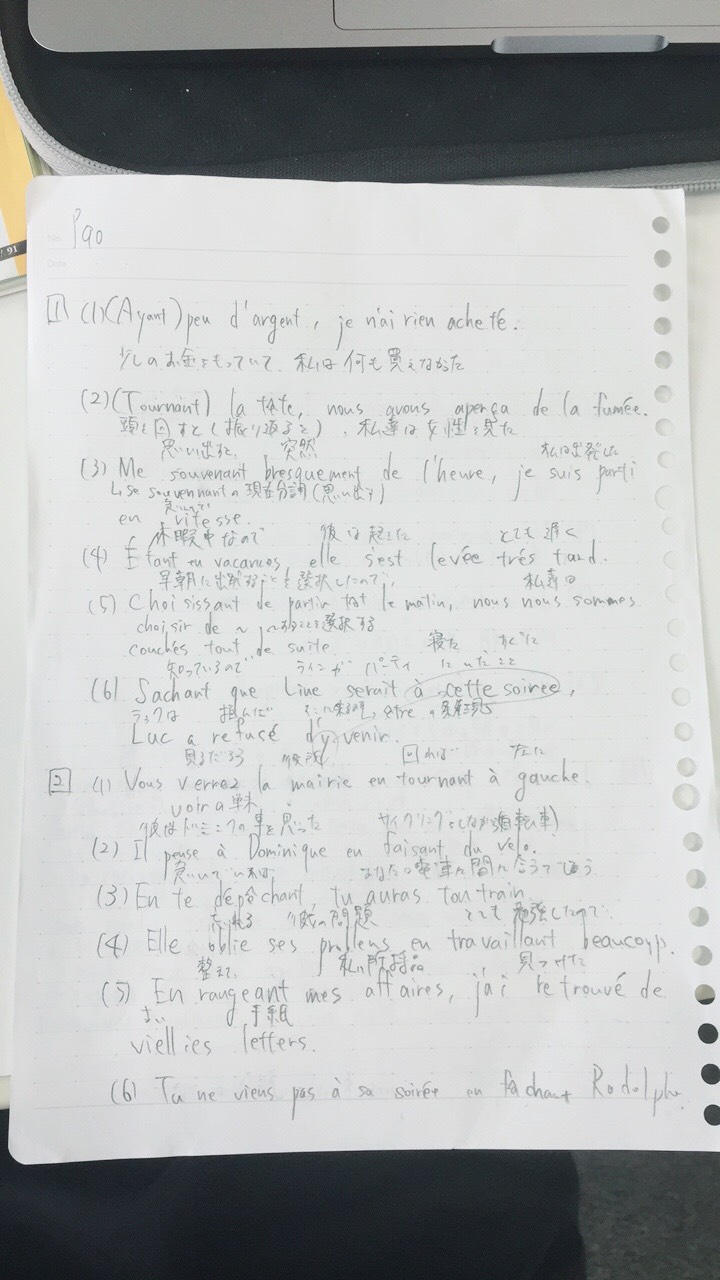 No.
P90
Date
16
1 (1) (Ayant) peu d'argent, je n'ai rien acheté.
少しのお金をもっていて、私は何も買えなかった
(2) (Tournant) la tête, nous avons aperça de la fumée.
頭を回すと(振り返ると)、私達は女性を見た
思い出すと、 突然 私は出発した
(3) Me souvenant bresquement de l'heure, je suis parti
se souvennantの現在分詞(思い出す)
急いで
en vitesse.
休暇中なので 彼は起きた とても遅く
(4) Étant en vacances, elle s'est levée trés tard.
早朝に出発することを選択したので、 私達は
(5) Choisissant de partir tôt le matin, nous nous sommes
choisir de ~ ~することを選択する
couchés tout de suite. 寝た すぐに
知っているので ラインが パーティ にいたこと
(6) Sachant que Line serait à cette soirée,
リュックは 拒んだ そこに来る
Luc a refusé d'y venir.
見るだろう 役所 回れば 左に
2 (1) Vous verrez la mairie en tournant à gauche.
voirの単未
彼はドミニクの事を思った サイクリングをしながら(自転車)
(2) Il pense à Dominique en faisant du vélo.
急いでいれば、 あなたは電車に間に合うでしょう
(3) En te dépêchant, tu auras ton train
忘れる 彼女の問題 とても勉強したので
(4) Elle oblie ses problens en travaillant beaucoyp.
整えて、 私の所持品 見つけた
(5) En rangeant mes affaires, j'ai retrouvé de
古い 手紙
viellies letters.
(6) Tu ne viens pas à sa soirée en fâchant Rodolphe.